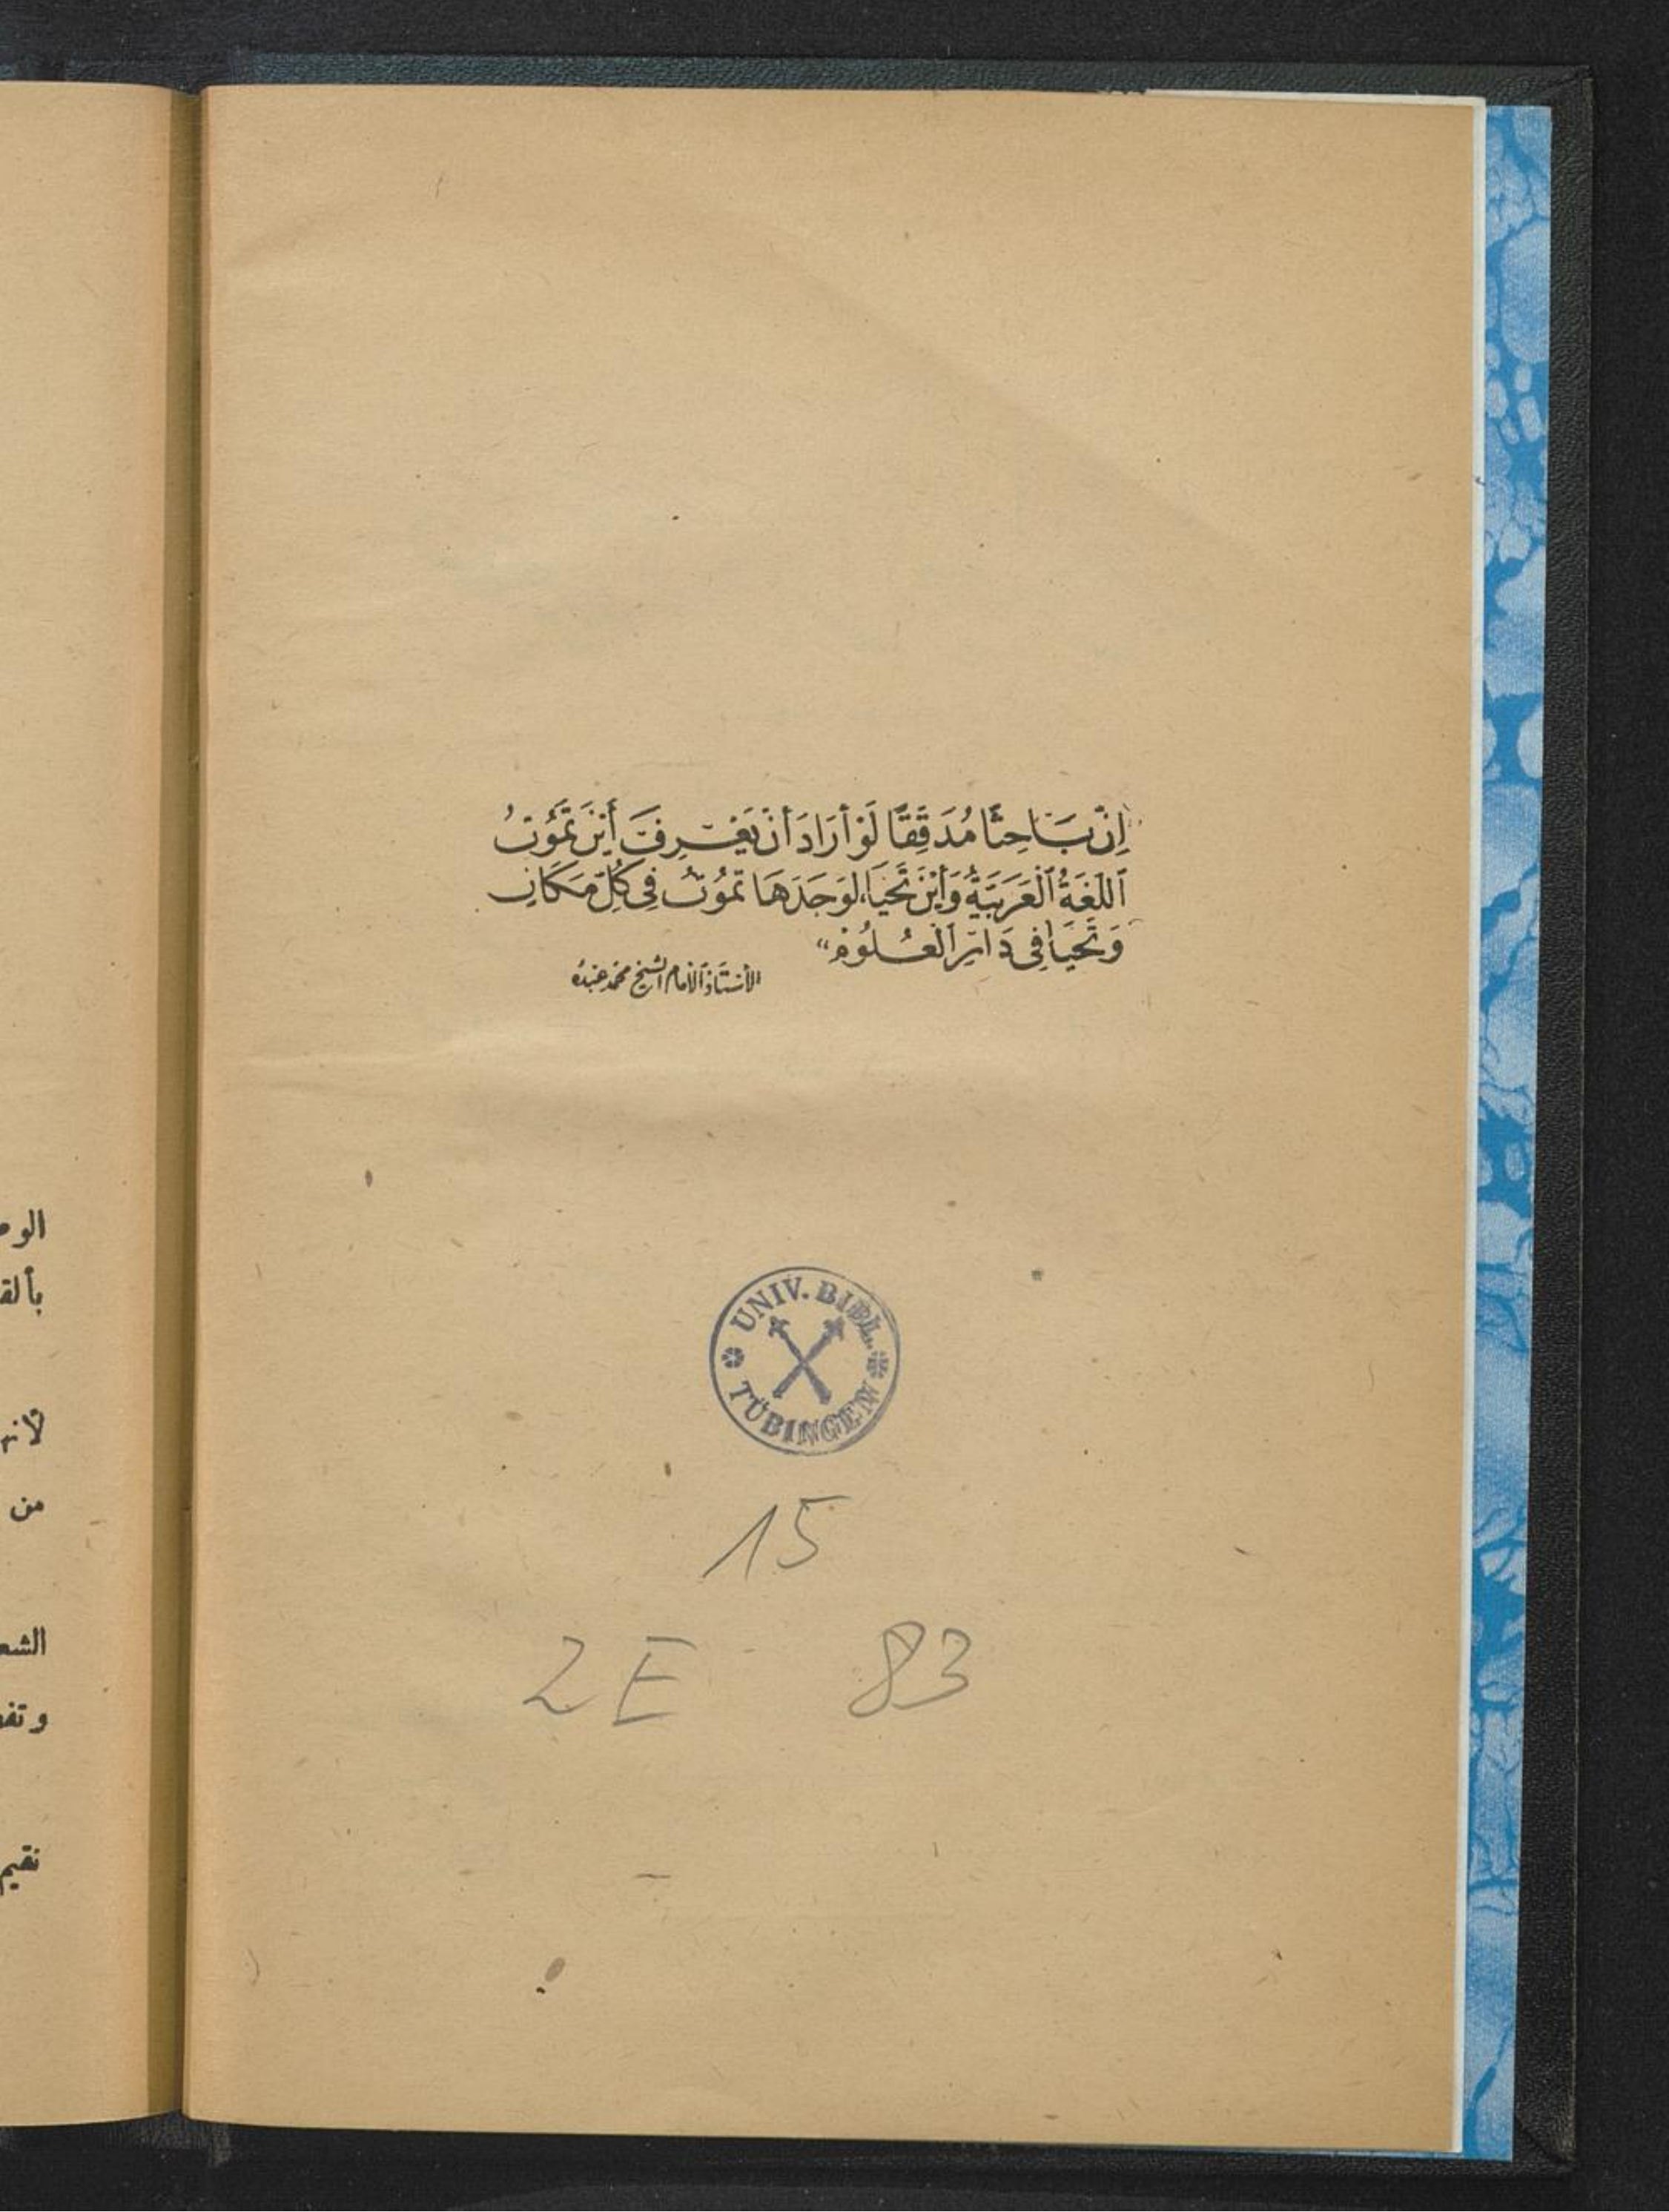 "إِنَّ بَاحِثًا مُدَقِّقًا لَوْ أَرَادَ أَنْ يَعْرِفَ أَيْنَ تَمُوتُ
ٱللُّغَةُ ٱلْعَرَبِيَّةُ وَأَيْنَ تَحْيَا، لَوَجَدَهَا تَمُوتُ فِي كُلِّ مَكَانٍ
وَتَحْيَا فِي دَارِ ٱلْعُلُومِ"
الأُسْتَاذ ٱلْإِمَام الشيخ محمد عبده
UNIV. BIBL.
TÜBINGEN
15
2E 83
الو
بألق
لأنه
من
الشع
وتف
نقيم